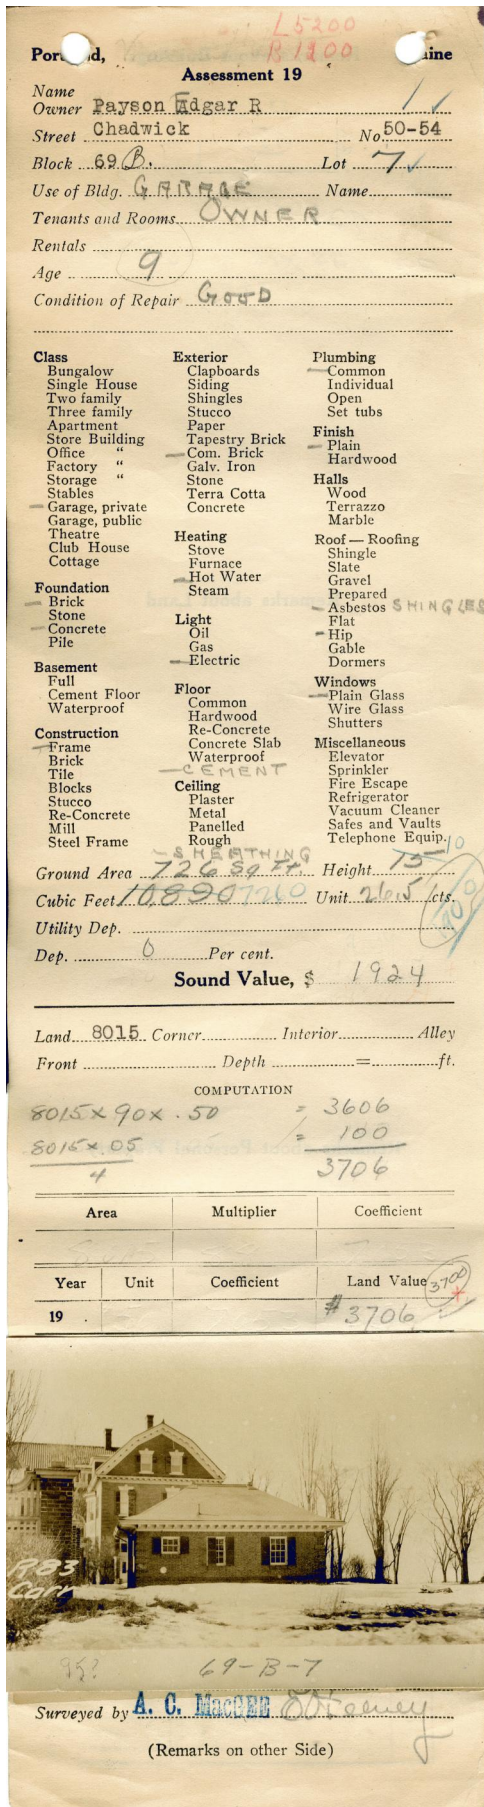 L 5200
Portland, Maine
B 1200
Assessment 19
Name
Owner Payson Edgar R
Street Chadwick No. 50-54
Block 69 B. Lot 7
Use of Bldg. GARAGE Name
Tenants and Rooms OWNER
Rentals
Age 9
Condition of Repair GOOD
Class
Bungalow
Single House
Two family
Three family
Apartment
Store Building
Office "
Factory "
Storage "
Stables
Garage, private
Garage, public
Theatre
Club House
Cottage
Foundation
Brick
Stone
Concrete
Pile
Basement
Full
Cement Floor
Waterproof
Construction
Frame
Brick
Tile
Blocks
Stucco
Re-Concrete
Mill
Steel Frame
Exterior
Clapboards
Siding
Shingles
Stucco
Paper
Tapestry Brick
Com. Brick
Galv. Iron
Stone
Terra Cotta
Concrete
Heating
Stove
Furnace
Hot Water
Steam
Light
Oil
Gas
Electric
Floor
Common
Hardwood
Re-Concrete
Concrete Slab
Waterproof
CEMENT
Ceiling
Plaster
Metal
Panelled
Rough
SHEATHING
Plumbing
Common
Individual
Open
Set tubs
Finish
Plain
Hardwood
Halls
Wood
Terrazzo
Marble
Roof — Roofing
Shingle
Slate
Gravel
Prepared
Asbestos SHINGLES
Flat
Hip
Gable
Dormers
Windows
Plain Glass
Wire Glass
Shutters
Miscellaneous
Elevator
Sprinkler
Fire Escape
Refrigerator
Vacuum Cleaner
Safes and Vaults
Telephone Equip.
Ground Area 726 Sq Ft. Height 15 10
Cubic Feet 10,890 7260 Unit 26.5 cts.
Utility Dep.
Dep. 0 Per cent.
Sound Value, $ 1924
Land 8015 Corner Interior Alley
Front Depth = ft.
COMPUTATION
8015 x 90 x .50 = 3606
8015 x .05 = 100
4 3706
Area Multiplier Coefficient
Year Unit Coefficient Land Value 3700
19 # 3706
R83
Carr
95? 69-B-7
Surveyed by A. C. MacGEE
(Remarks on other Side)